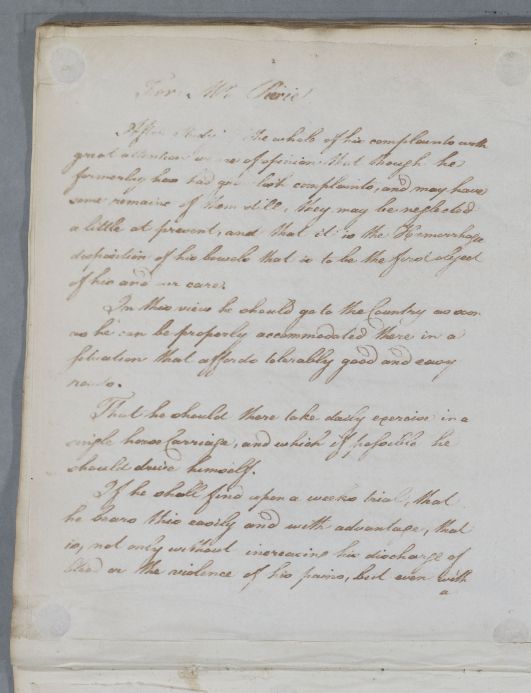 For Mr Pirie
After the whole of his complaints with
great attention we are of opinion that though he
formerly has had complaints, and may have
some remains of them still, they may be neglected
a little at present, and that it is the Hemorrhage
disposition of his bowels that is to be the first object
of his and our care.
In this view he should go to the Country as soon
as he can be properly accommodated there in a
situation that affords tolerably good and easy
roads.
That he should there take daily exercise in a
single horse Carriage, and which if possible he
should drive himself.
If he shall find upon a weeks trial, that
he bears this easily and with advantage, that
is, not only without increasing his discharge of
blood or the violence of his pains, but even with
a